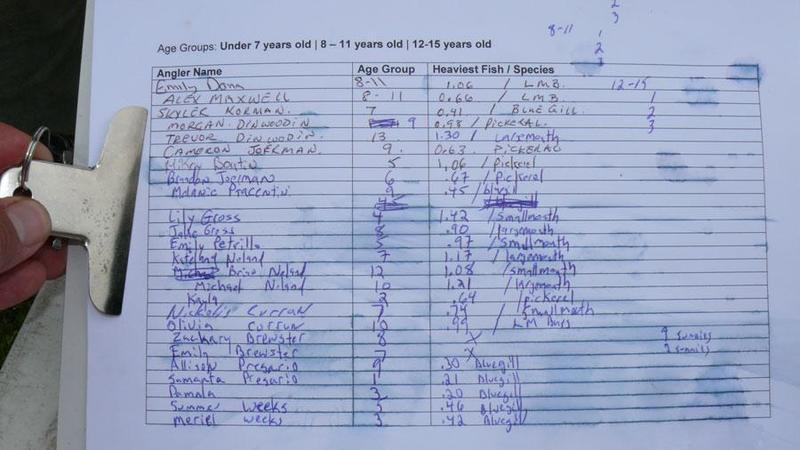 2
3
8-11
1
2
3
Age Groups: Under 7 years old | 8 – 11 years old | 12-15 years old
Angler Name Age Group Heaviest Fish / Species
Emily Dann 8-11 1.06 / L.M.B. 12-15
ALEX MAXWELL 8-11 0.66 / L.M.B. 1
SKYLER KORMAN. 7 0.41 / BLUE GILL. 2
MORGAN. DINWOODIN. 9 0.98 / PICKERAL. 3
TREVOR DINWOODIN. 13. 1.30 / Largemouth
CAMERON JOERMAN. 9. 0.63. PICKERAL
Mikey 5 1.06 / Pickerel
Brandon Joerman 6 .67 / Pickerel
Melanie Piacentini 9 .45 /
Lily Gross 4 1.42 / Smallmouth
Jake Gross 8 .90 / largemouth
Emily Petrillo 5 .97 / Smallmouth
Noland 7 1.17 / largemouth
Brian Noland 12 1.08 / smallmouth
Michael Noland 10 1.21 / largemouth
Kayla 2 .64 / pickerel
Curran 7 .74 / Smallmouth
Olivia Curran 10 .99 / LM Bass
Zachary Brewster 8 X 9 Sunnies
Emily Brewster 7 X 2 Sunnies
Allison Pregario 9 .30 Bluegill
Samanta Pregario 1 .21 Bluegill
Pamala 3 .20 Bluegill
Summer Weeks 3 .46 Bluegill
Meriel Weeks 3 .42 Bluegill